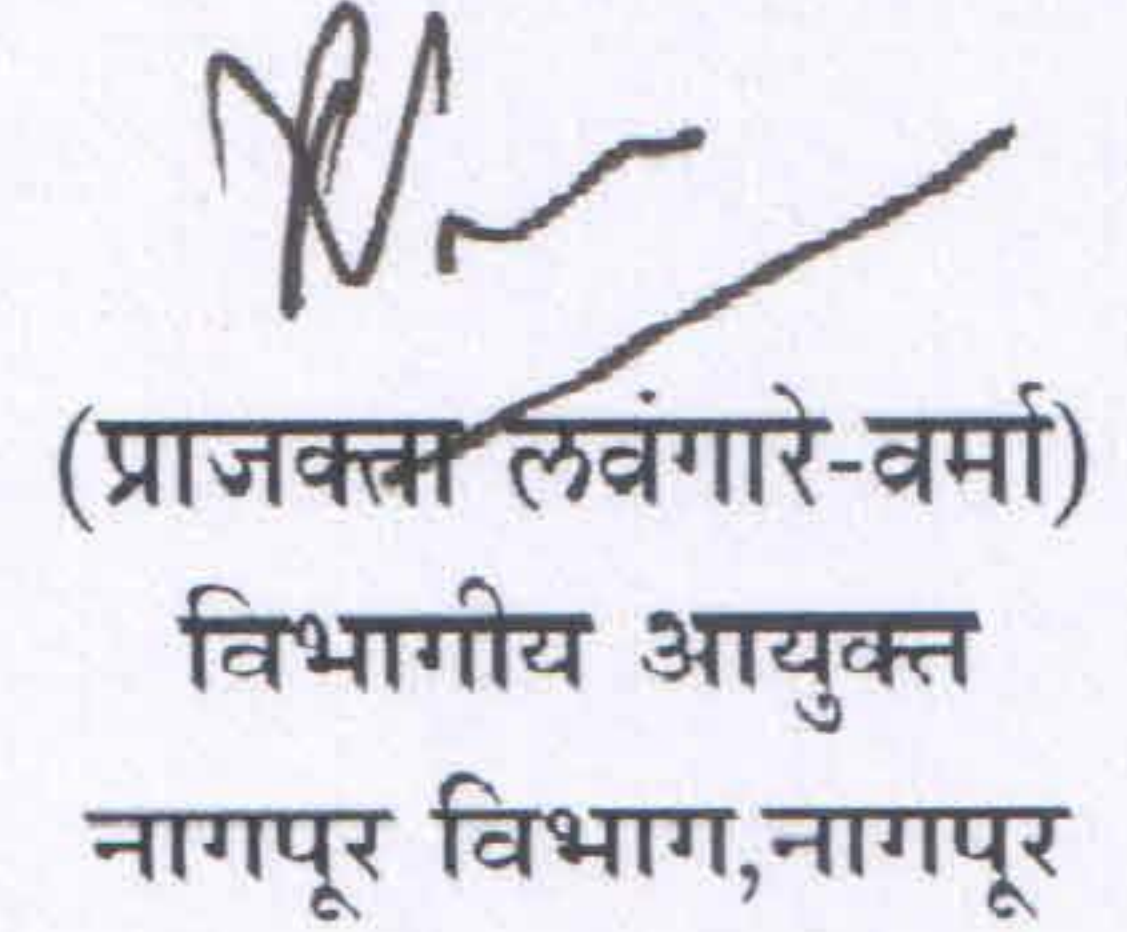 (प्राजक्ता लवंगारे-वर्मा)
विभागीय आयुक्त
नागपूर विभाग,नागपूर